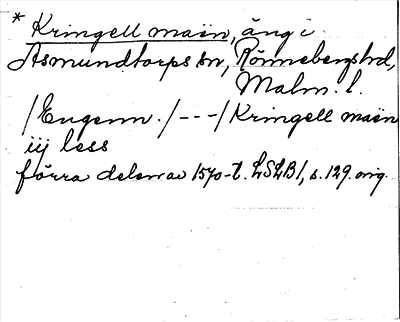 * Kringell maën, äng i
Asmundtorps sn, Rönnebergs hd,
Malm. l.
/Engenn./ - - -/Kringell maën
iij less
förra delen av 1570-t. LSLB1, s. 129. orig.